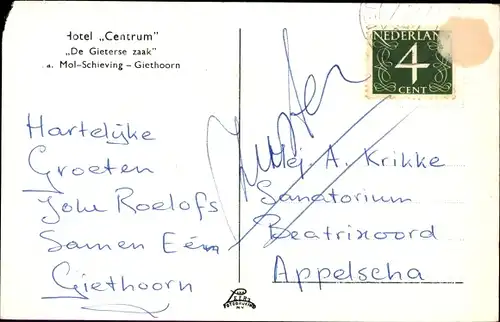 Hotel „Centrum"
„De Gieterse zaak"
Mol-Schieving - Giethoorn
NEDERLAND
4
CENT
Hartelijke
Groeten
Joke Roelofs
Samen
Giethoorn
Mej. A. Krikke
Sanatorium
Beatrixoord
Appelscha